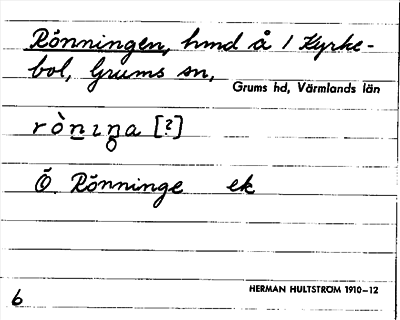 Rönningen, hmd å 1 Kyrke-
bol, Grums sn,
Grums hd, Värmlands län
rὸn̲ɪn̲̥a [?]
Ö. Rönninge ek
HERMAN HULTSTRÖM 1910–12
6